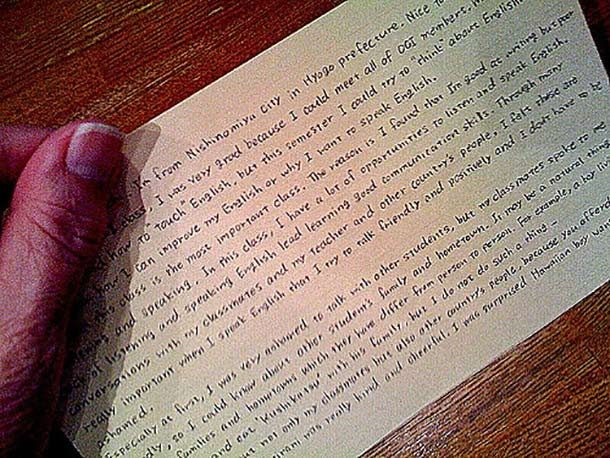 I'm from Nishinomiya City in Hyogo prefecture. Nice to
class. I was very good because I could meet all of OGI members.
how to touch English, but this semester I could try to "think" about English
how I can improve my English or why I want to speak English.
This class is the most important class. The reason is I found that I'm good at writing but poor
at and speaking. In this class, I have a lot of opportunities to listen and speak English.
of listening and speaking English lead learning good communication skills. Through many
conversations with my classmates and my teacher and other country's people, I felt these are
really important when I speak English that I try to talk friendly and positively and I don't have to be
ashamed.
Especially at first, I was very ashamed to talk with other students, but my classmates spoke to me
so I could know about other student's family and hometown. It may be a natural thing
families and hometowns which they have differ from person to person. For example, a boy
and eat "kushikatsu" with his family, but I do not do such a thing.
not only my classmates but also other country's people, because you offered
was really kind and cheerful. I was surprised Hawaiian boy